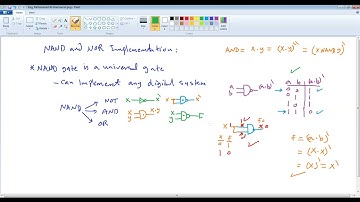 NAND and NOR Implementation:
* NAND gate is a universal gate
- Can implement any digital system
NAND
NOT
AND
OR
x x'
x x'
x y x.y
x y
AND = x.y = (x.y)' = (x NAND y)'
a b (a.b)'
a b (a.b)'
0 0 1
0 1 1
1 0 1
1 1 0
x F
0 1
1 0
f = (a.b)'
= (x.x)'
= (x)' = x'